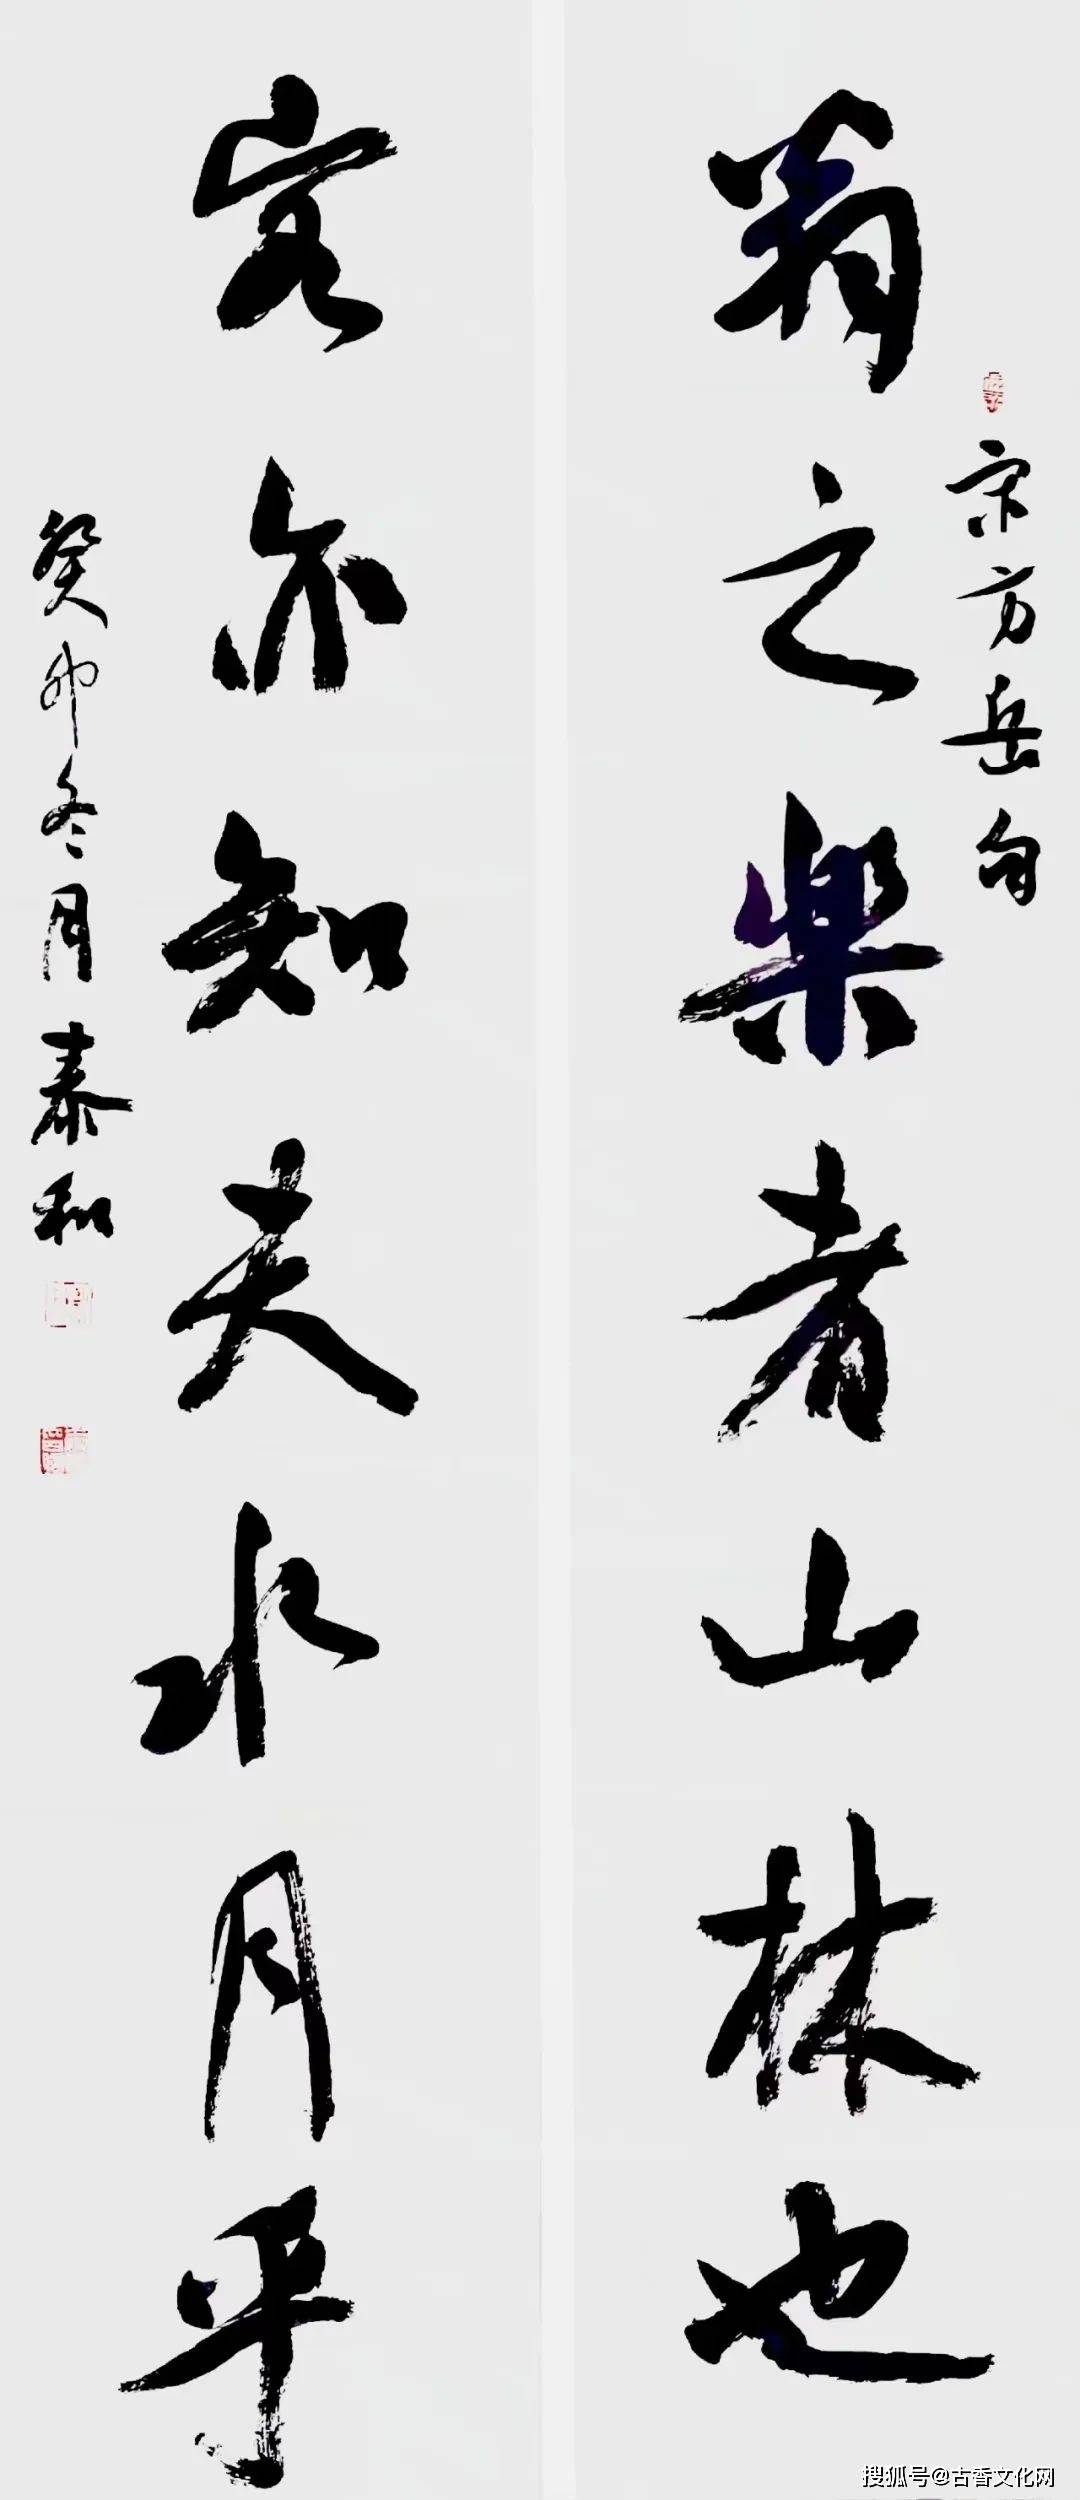 宋方岳句
翁之樂者山林也
客亦知夫水月乎
癸卯冬月泰和
搜狐号@古香文化网